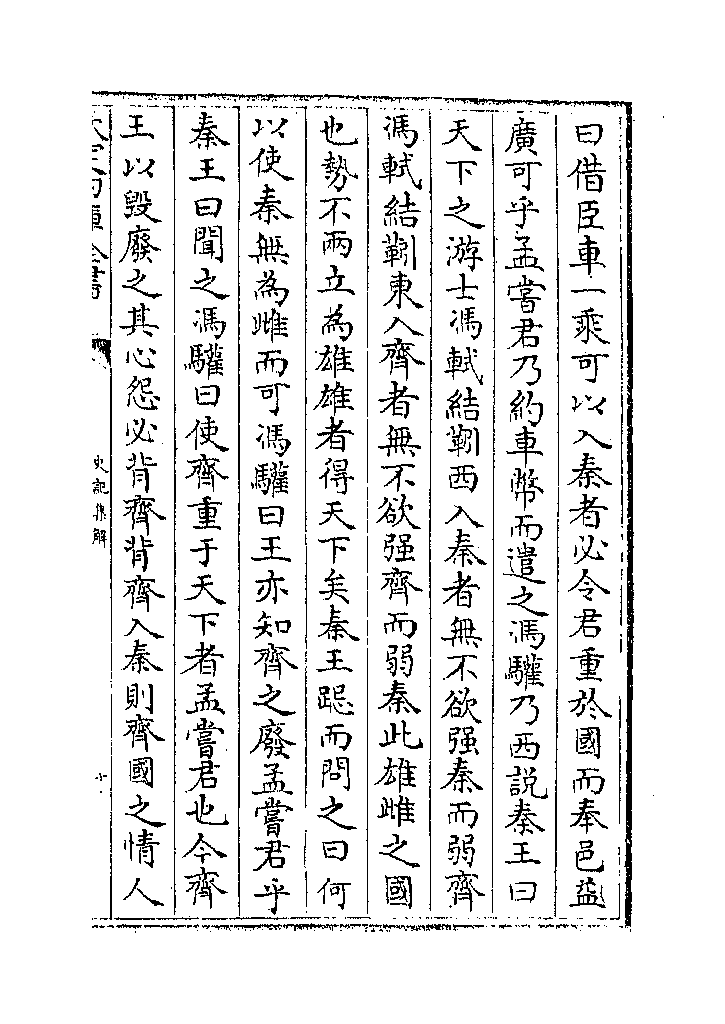 曰借臣車一乘可以入秦者必令君重於國而奉邑益
廣可乎孟嘗君乃約車幣而遣之馮驩乃西説秦王曰
天下之游士馮軾結靷西入秦者無不欲强秦而弱齊
馮軾結靷東入齊者無不欲强齊而弱秦此雄雌之國
也勢不兩立為雄雄者得天下矣秦王跽而問之曰何
以使秦無為雌而可馮驩曰王亦知齊之廢孟嘗君乎
秦王曰聞之馮驩曰使齊重于天下者孟嘗君也今齊
王以毀廢之其心怨必背齊背齊入秦則齊國之情人
史記集解